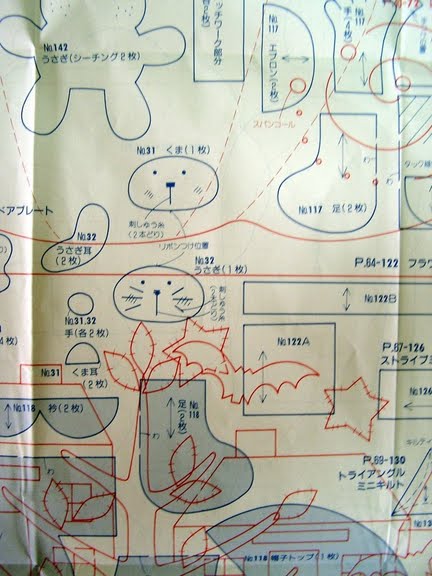 No.142
うさぎ(シーチング2枚)
ッチワーク部分
No.
117
エプロン(2枚)
スパンコール
No.31 くま(1枚)
刺しゅう糸
(2本どり)
リボンつけ位置
No.117 足(2枚)
わ
タック
ベアプレート
No.32
うさぎ耳
(2枚)
No.32
うさぎ(1枚)
刺しゅう糸
P.64-122 フラワ
No.122B
No.31,32
手(各2枚)
No.122A
P.67-126
ストライプミ
No.31 くま耳
(2枚)
No.126
No.118 衿(2枚)
No.118
足(2枚)
わ
わ
P.69-130
トライアングル
ミニキルト
No.118 帽子トップ(1枚)